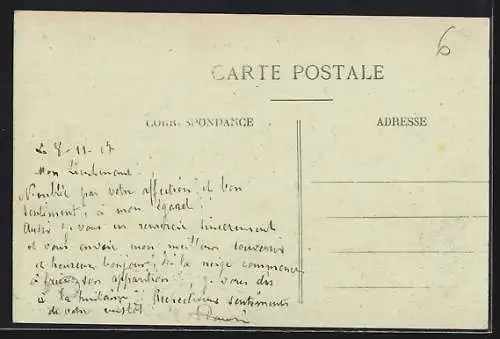 6
CARTE POSTALE
CORRESPONDANCE
ADRESSE
Le 8-11-17
Mon Lieutenant
par votre affection et bon
sentiment, à mon égard
Aussi je vous en remercie sincèrement
et vous envoie mon meilleur souvenir
et heureux bonjour, ici la neige commence
à son apparition, je vous dis
à la militaire, sentiments
de votre